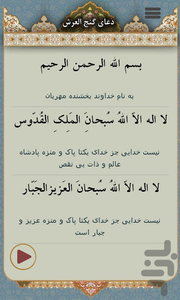 دعای گنج العرش
بسم الله الرحمن الرحیم
به نام خداوند بخشنده مهربان
لا اله الاَّ اللهُ سُبحانَ المَلِکِ القُدّوس
نیست خدایی جز خدای یکتا پاک و منزه پادشاه
عالم و ذات بی نقص
لا اله الاَّ اللهُ سُبحانَ العَزیزِالجَبّار
نیست خدایی جز خدای یکتا پاک و منزه عزیز و
جبار است